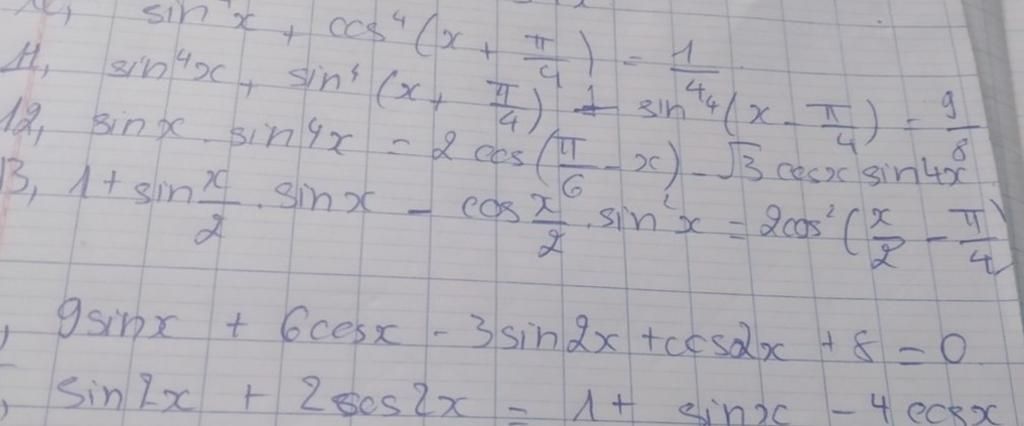 sin⁴x + cos⁴(x + π/4) = 1/4
11, sin⁴x + sin⁴(x + π/4) + sin⁴(x - π/4) = 9/8
12, sinx . sin4x = 2 cos(π/6 - x) - √3 cosx sin4x
13, 1 + sin x/2 . sinx - cos x/2 . sin²x = 2cos²(x/2 - π/4)
, 9sinx + 6cosx - 3sin2x + cos2x + 8 = 0
, sin2x + 2cos2x = 1 + sinx - 4cosx